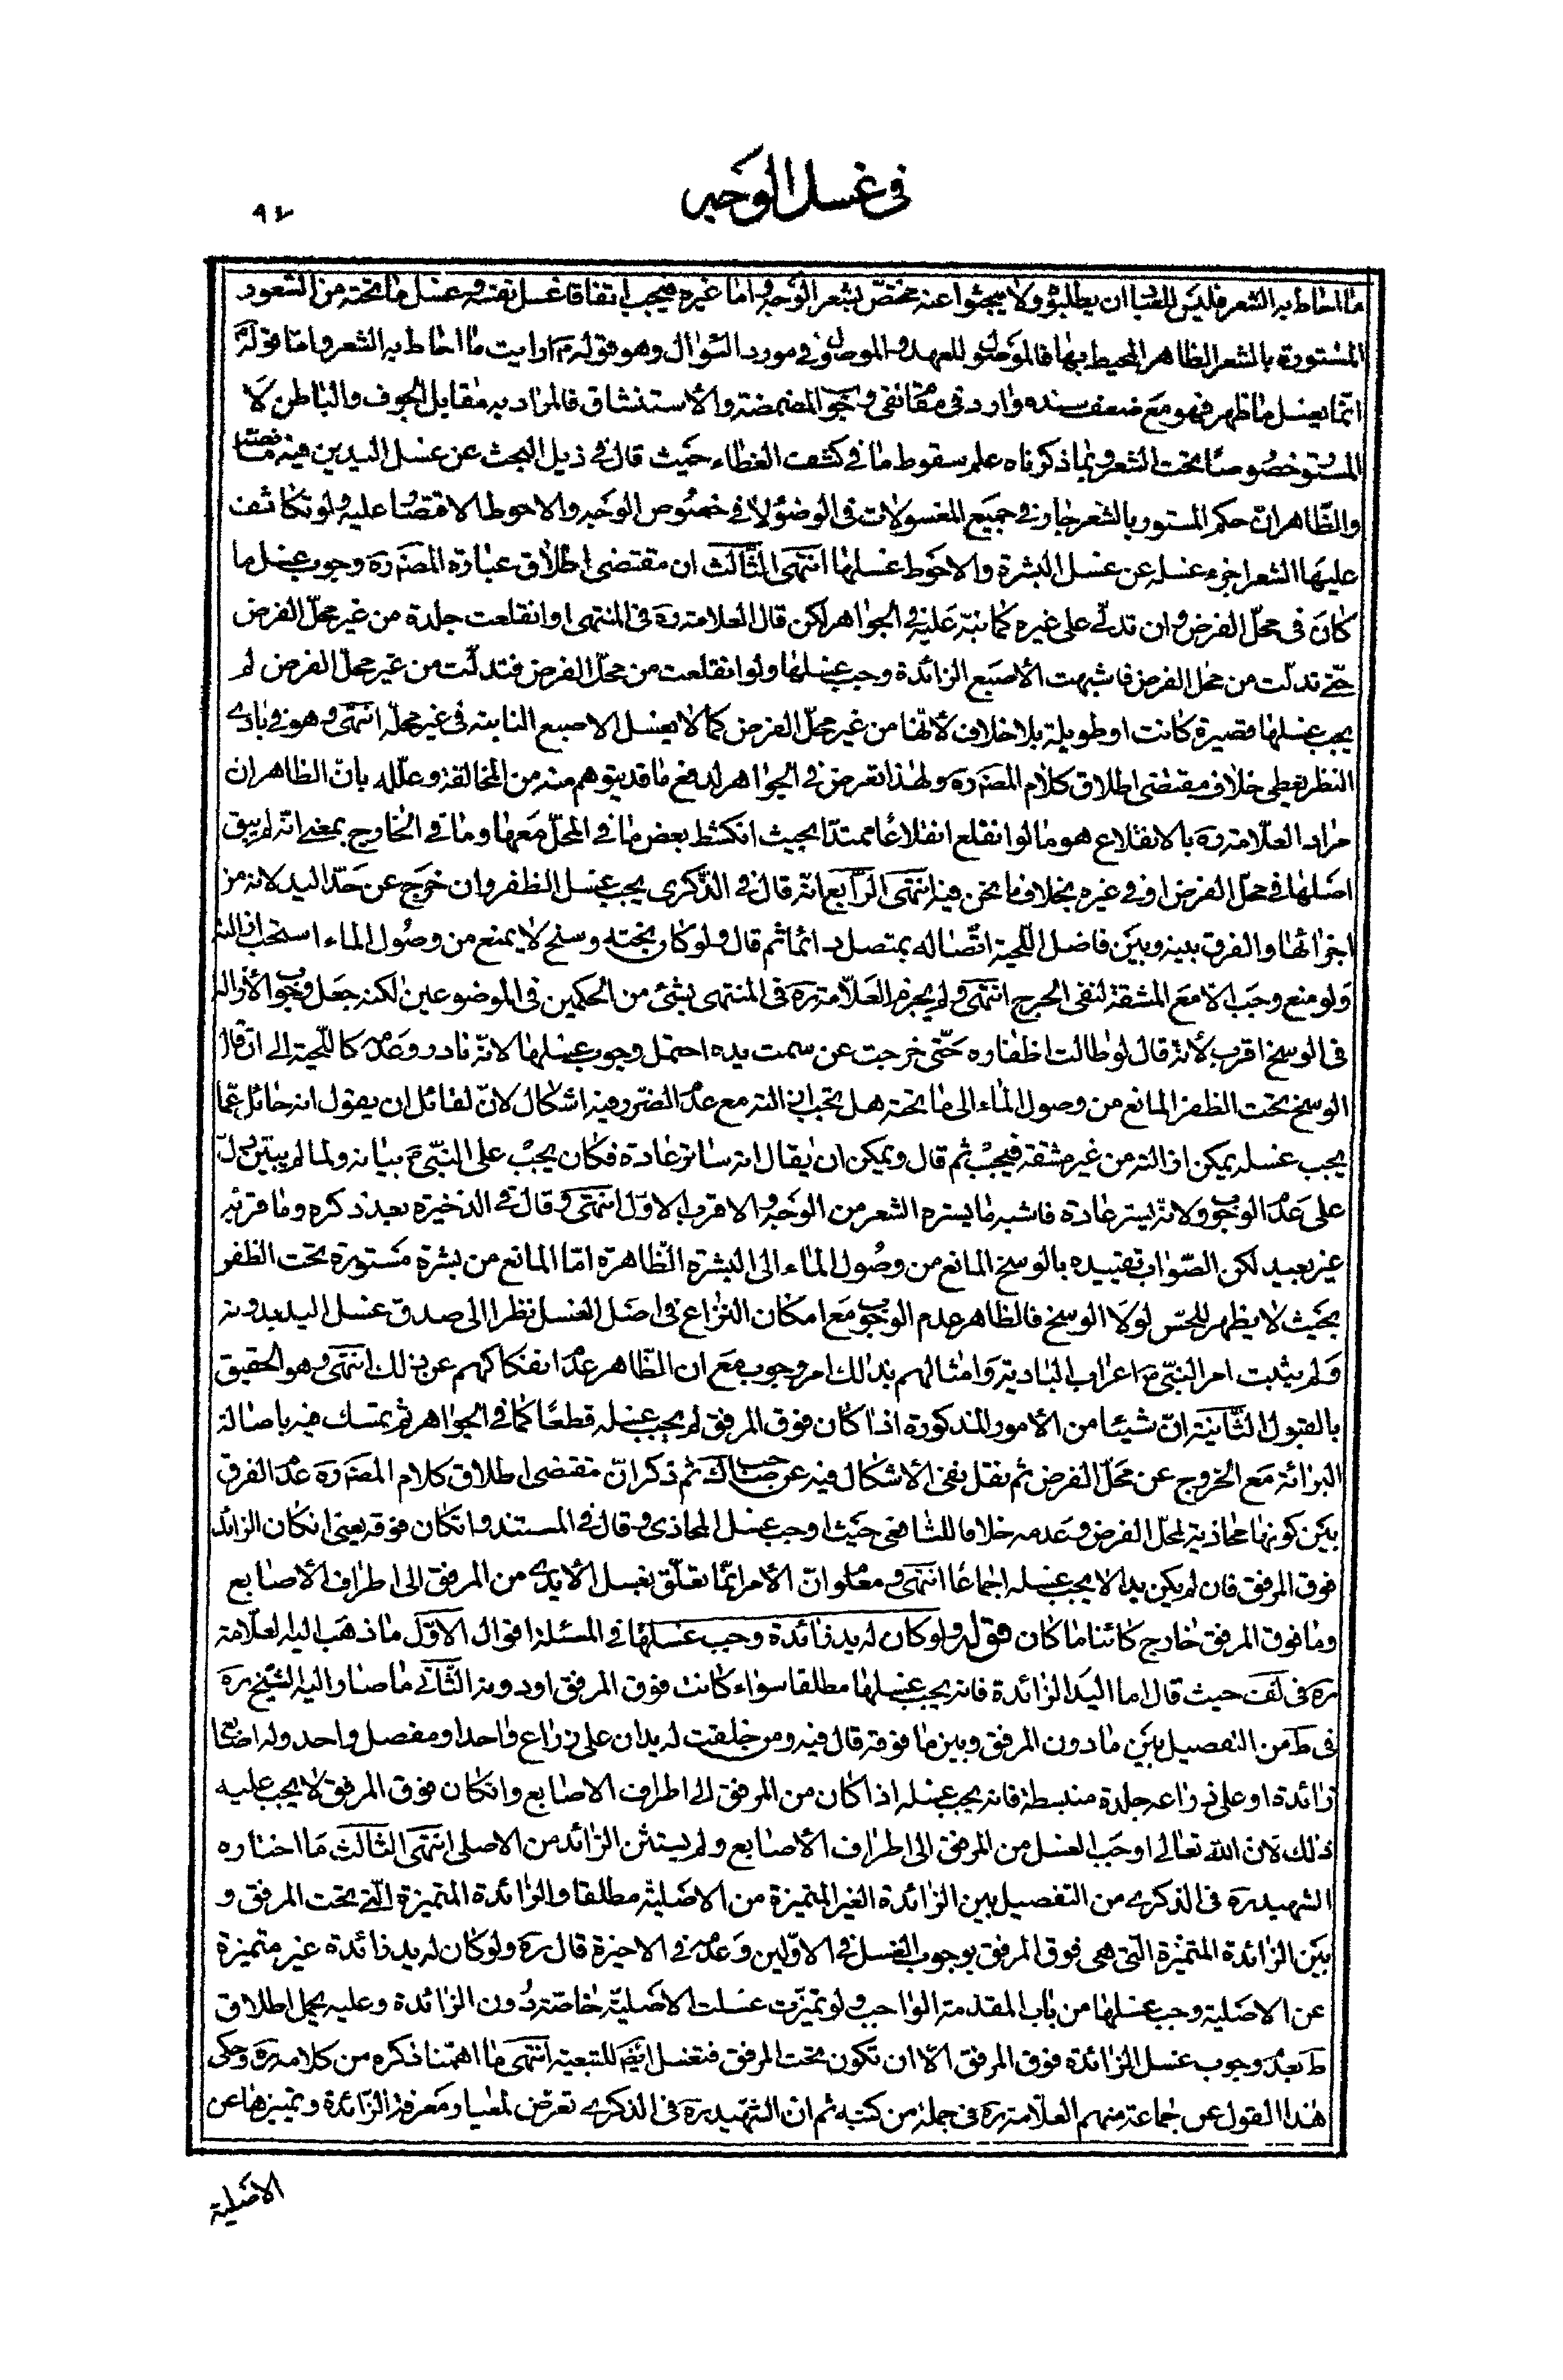 في غسل الوجه
٩٧
ما احاط به الشعر فليس للعباد ان يطلبوه ولا يبحثوا عنه مختصّ بشعر الوجه و اما غيره فيجب اتفاقا غسل نفسه و غسل ما تحته من الشعور
المستورة بالشعر الظاهر المحيط بها فالموصول للعهد و الموصوف في مورد السّؤال وهو قوله ارايت ما احاط به الشعر و امّا قوله
انّما يغسل ما ظهر فهو مع ضعف سنده وارد في مقام نفي وجوب المضمضة والأستنشاق فالمراد به مقابل الجوف والباطن لا
المستور خصُوصًا تحت الشعر و بما ذكرناه علم سقوط ما في كشف الغطاء حيث قال في ذيل البحث عن غسل اليدين فيه
والظّاهر انّ حكم المستور بالشعر جار في جميع المغسولات في الوضوء لا في خصُوص الوجه والاحوط الاقتصار عليه ولو تكاثف
عليها الشعر اجزء غسله عن غسل البشرة والاحوط غسلها انتهى الثّالث ان مقتضى اطلاق عبارة المصنّف ره وجوب غسل ما
كان في محلّ الفرض و ان تدلّى على غيره كما نبّه عليه في الجواهر لكن قال العلامة ره في المنتهى او انقلعت جلدة من غير محلّ الفرض
حتّى تدلّت من محل الفرض فاشبهت الأصبع الزائدة وجب غسلها ولو انقلعت من محلّ الفرض فتدلّت من غير محلّ الفرض لم
يجب غسلها قصيرة كانت او طويلة بلا خلاف لأنّها من غير محلّ الفرض كما لا يغسل الاصبع النابتة في غير محلّه انتهى و هو في بادى
النظر يعطى خلاف مقتضى اطلاق كلام المصنّف ره ولهذا تعرض في الجواهر لدفع ما قد يتوهم منه من المخالفة و علّله بانّ الظاهر ان
مراد العلّامة ره بالانقلاع هو ما لو انقلع انقلاعًا ممتدّا بحيث انكشط بعض ما في المحلّ معها و ما في الخارج بمعنى انّه لم يبق
اصلها في محلّ الفرض او في غيره بخلاف ما نحن فيه انتهى الرّابع انّه قال في الذّكرى يجب غسل الظفر و ان خرج عن حدّ اليد لانه من
اجزائها والفرق بينه و بين فاضل اللّحية اتّصاله بمتصل دائما ثم قال ولو كان تحته وسخ لا يمنع من وصُول الماء استحب ازالته
ولو منع وجب الّا مع المشقة لنفي الحرج انتهى و لم يجزم العلّامة ره في المنتهى بشئ من الحكمين في الموضوعين لكنه جعل وجوب الأزالة
في الوسخ اقرب لأنّه قال لو طالت اظفاره حتّى خرجت عن سمت يده احتمل وجوب غسلها لانّه نادر و عدمه كاللّحية الى ان قال
الوسخ تحت الظفر المانع من وصول الماء الى ما تحته هل تجب ازالته مع عدم الضّرر فيه اشكال لانّ لقائل ان يقول انه حائل عمّا
يجب غسله يمكن ازالته من غير مشقة فيجب ثم قال ويمكن ان يقال انه ساتر عادة فكان يجب على النّبي بيانه ولما لم يبيّن دلّ
على عدم الوجوب ولانّه يستر عادة فاشبه ما يستره الشعر من الوجه و الاقرب الاوّل انتهى و قال في الذخيرة بعد ذكره وما قرّبه
غير بعيد لكن الصّواب تقييده بالوسخ المانع من وصُول الماء الى البشرة الظّاهرة امّا المانع من بشرة مستورة تحت الظفر
بحيث لا يظهر للحسّ لولا الوسخ فالظاهر عدم الوجوب مع امكان النّزاع في اصل الغسل نظرا الى صدق غسل اليد بدونه
ولم يثبت امر النّبي اعراب البادية وامثالهم بذلك امر وجوب مع ان الظّاهر عدم انفكاكهم عن ذلك انتهى و هو الحقيق
بالقبول الثّانية انّ شيئا من الأمور المذكورة اذا كان فوق المرفق لم يجب غسله قطعًا كما في الجواهر ثم تمسك فيه باصالة
البرائة مع الخروج عن محلّ الفرض ثم نقل نفي الأشكال فيه عن ثم ذكر انّ مقتضى اطلاق كلام المصنّف ره عدم الفرق
بين كونها محاذية لمحلّ الفرض و عدمه خلافا للشافعي حيث اوجب غسل المحاذى و قال في المستند و ان كان فوقه يعني ان كان الزائد
فوق المرفق فان لم يكن يدا لا يجب غسله اجماعًا انتهى و معلوم انّ الأمر انّما تعلّق بغسل الأيدى من المرفق الى اطراف الأصابع
وما فوق المرفق خارج كائنا ما كان قوله ولو كان له يد زائدة وجب غسلها في المسئلة اقوال الاوّل ما ذهب اليه العلّامة
ره في لف حيث قال اما اليد الزائدة فانه يجب غسلها مطلقا سواء كانت فوق المرفق او دونه الثّاني ما صار اليه الشّيخ ره
في ط من التفصيل بين ما دون المرفق وبين ما فوقه قال فيه ومن خلقت له يدان على ذراع واحد او مفصل واحد وله اصابع
زائدة او على ذراعه جلدة منبسطة فانه يجب غسله اذا كان من المرفق الى اطراف الاصابع و ان كان فوق المرفق لا يجب عليه
ذلك لان الله تعالى اوجب الغسل من المرفق الى اطراف الأصابع ولم يستثن الزّائد من الاصلى انتهى الثّالث ما اختاره
الشهيد ره في الذكرى من التفصيل بين الزّائدة الغير المتميزة من الاصليّة مطلقا والزّائدة المتميزة الّتي تحت المرفق و
بين الزّائدة المتميّزة الّتي هي فوق المرفق بوجوب الغسل في الاوّلين و عدمه في الاخيرة قال ره ولو كان له يد زائدة غير متميزة
عن الاصلية وجب غسلها من باب المقدمة الواجب ولو تميّزت غسلت الاصليّة خاصّة دُون الزّائدة و عليه يحمل اطلاق
ط بعدم وجوب غسل الزّائدة فوق المرفق الّا ان تكون تحت المرفق فتغسل ايضا للتبعية انتهى ما اهمّنا ذكره من كلامه ره و حكى
هذا القول عن جماعة منهم العلّامة ره في جملة من كتبه ثم ان الشّهيد ره في الذكرى تعرّض لمعيار معرفة الزّائدة و تميزها عن
الاصلية